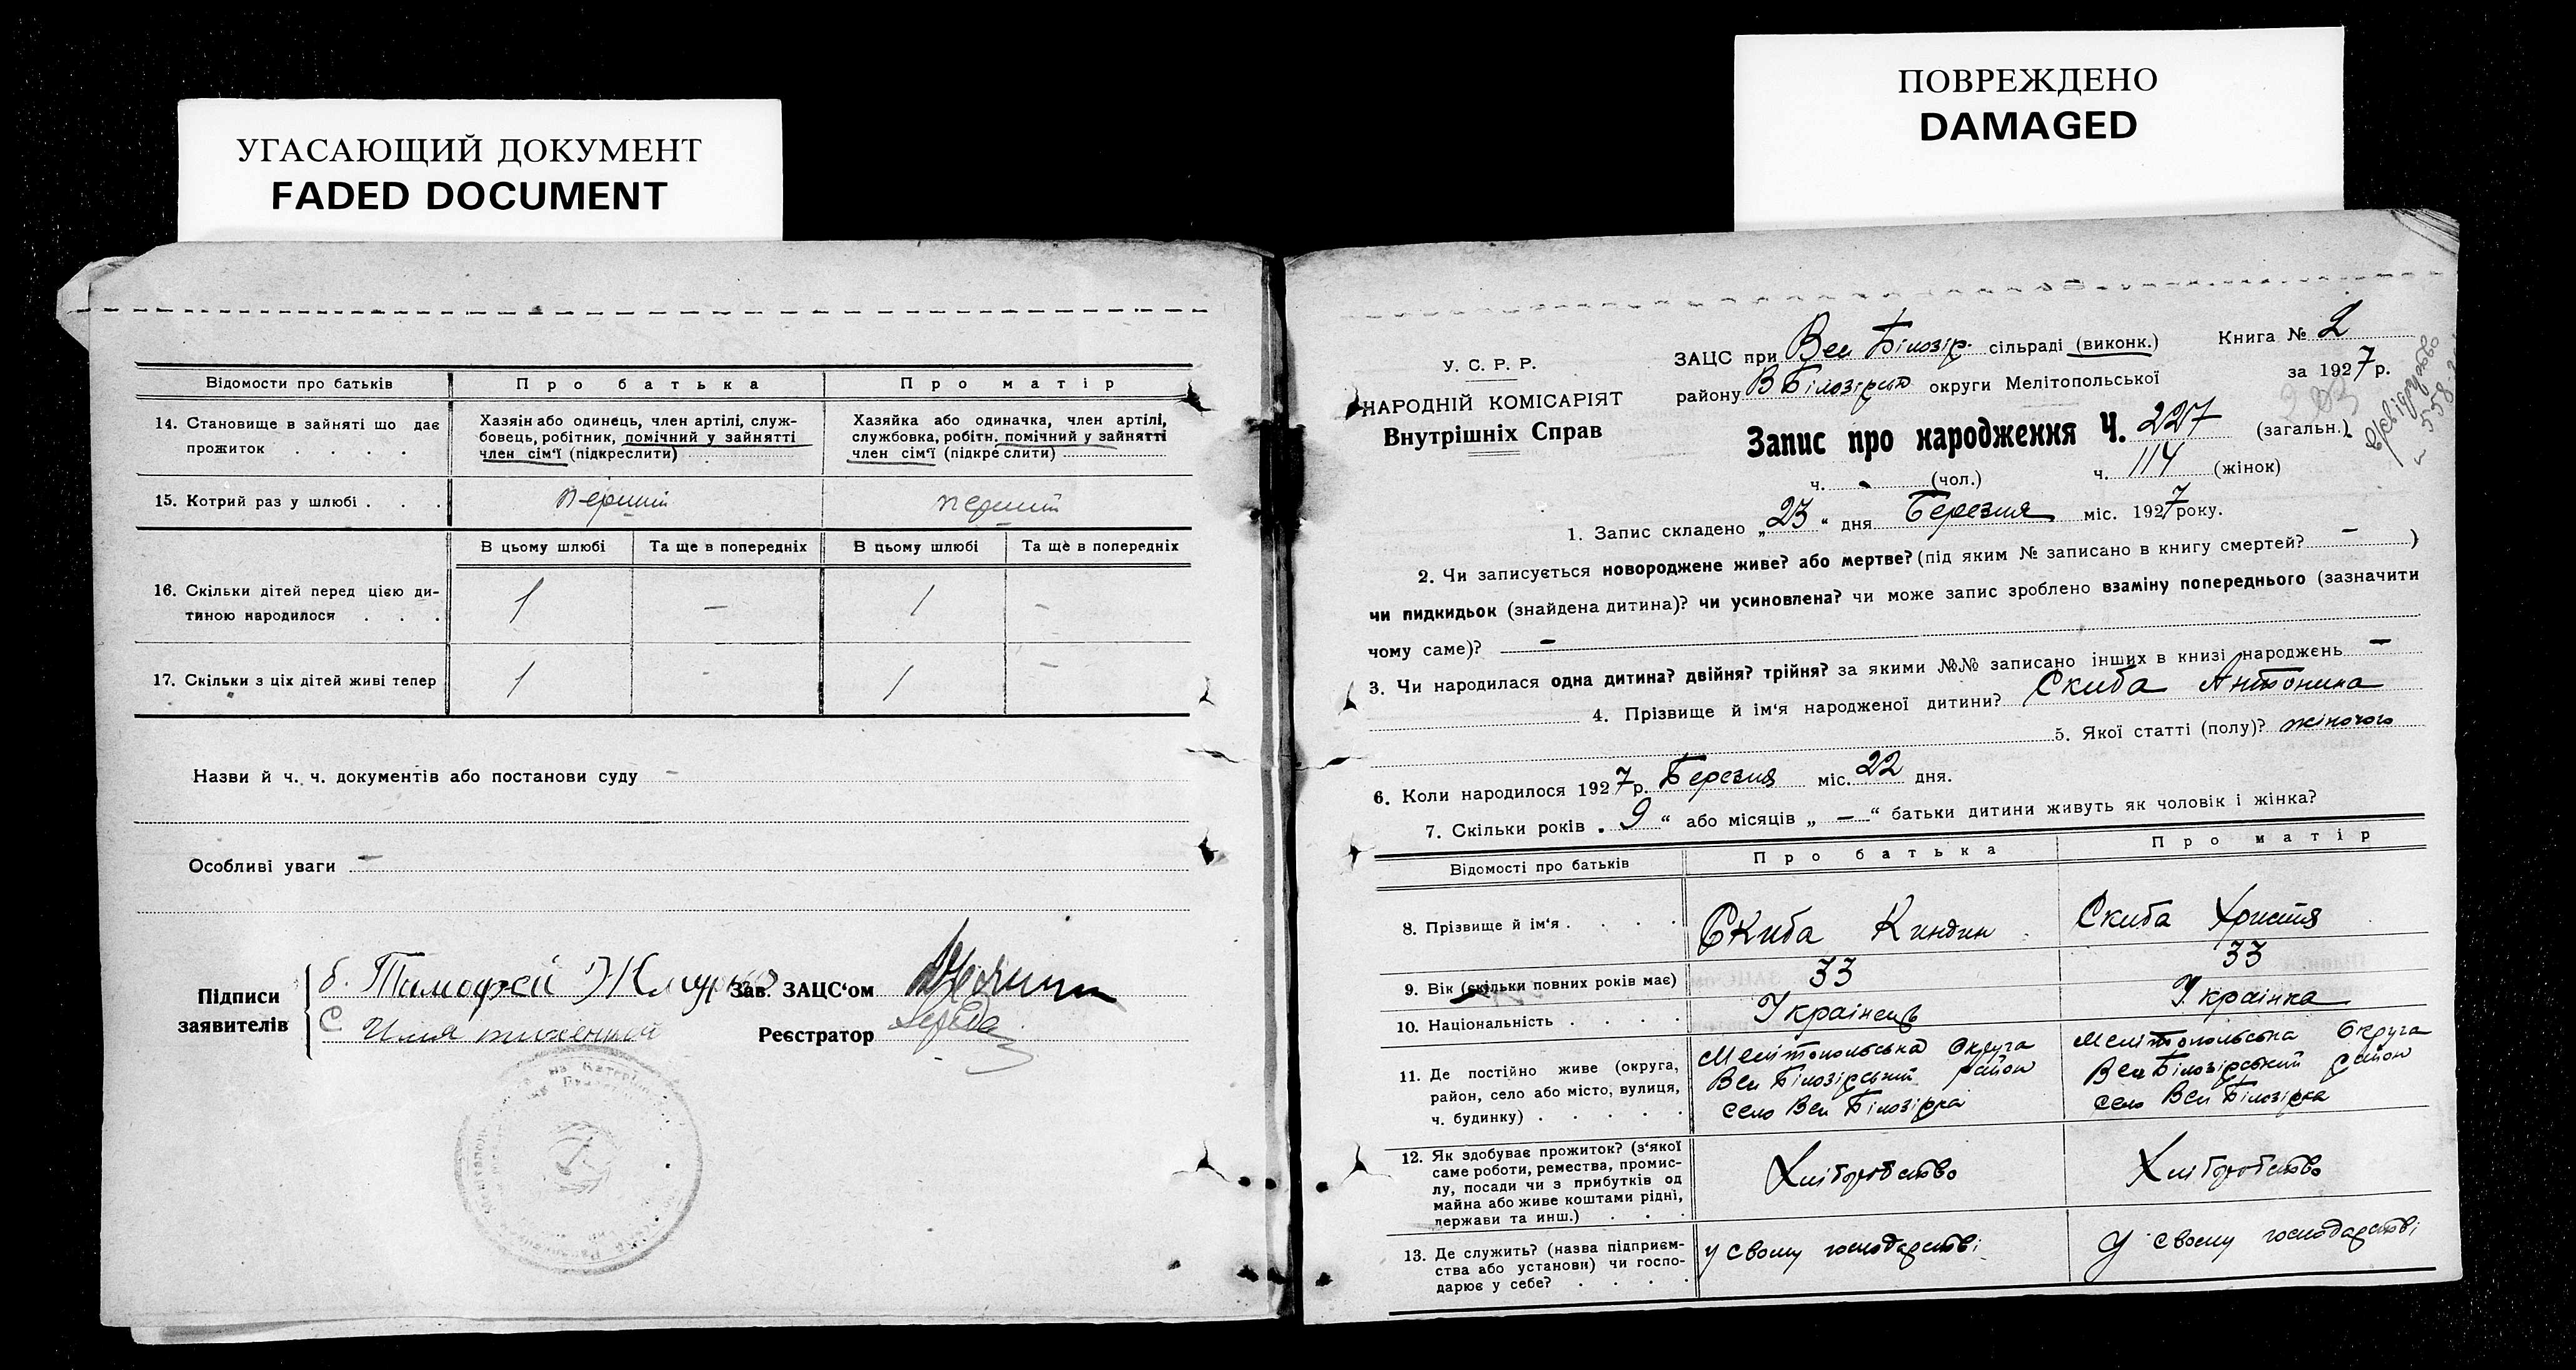 УГАСАЮЩИЙ ДОКУМЕНТ
FADED DOCUMENT
Відомости про батьків
Про батька
Про матір
14. Становище в зайняті що дає прожиток . . . .
Хазяін або одинець, член артілі, служ-
бовець, робітник, помічний у зайнятті
член сім'ї (підкреслити)
Хазяйка або одиначка, член артілі,
службовка, робітн. помічний у зайнятті
член сім'ї (підкреслити)
15. Котрий раз у шлюбі . . .
перший
перший
В цьому шлюбі
Та ще в попередніх
В цьому шлюбі
Та ще в попередніх
16. Скільки дітей перед цією ди-
тиною народилося . . .
1 — 1 -
17. Скільки з ціх дітей живі тепер
1 - 1 —
Назви й ч. ч. документів або постанови суду —
Особливі уваги —
Підписи
заявителів
б. Тимофей Жмурко
С
Зав. ЗАЦС'ом
Реєстратор
ПОВРЕЖДЕНО
DAMAGED
У. С. Р. Р.
НАРОДНІЙ КОМІСАРІЯТ
Внутрішніх Справ
ЗАЦС при Вел Білозір сільраді (виконк.)
Книга № 2
району В Білозірськ округи Мелітопольської
за 1927 р.
Запис про народження Ч. 227 (загальн.)
ч. - (чол.) ч. 114 (жінок)
1. Запис складено „23“ дня Березня міс. 1927 року.
2. Чи записується новороджене живе? або мертве? (під яким № записано в книгу смертей? — )
чи пидкидьок (знайдена дитина)? чи усиновлена? чи може запис зроблено взаміну попереднього (зазначити
чому саме)? —
3. Чи народилася одна дитина? двійня? трійня? за якими №№ записано інших в книзі народжень —
4. Прізвище й ім'я народженої дитини? Скиба Антонина
5. Якої статті (полу)? жіночого
6. Коли народилося 1927 р. Березня міс. 22 дня.
7. Скільки років „ 9 “ або місяців „ — “ батьки дитини живуть як чоловік і жінка?
Відомості про батьків
Про батька
Про матір
8. Прізвище й ім'я . . . .
Скиба Киндин
Скиба Христя
9. Вік (скільки повних років має)
33
33
10. Національність . . . .
Українець
Українка
11. Де постійно живе (округа,
район, село або місто, вулиця,
ч. будинку) . . . . .
Мелітопольська Округа
Вел Білозірський район
село Вел Білозірка
Мелітопольська Округа
Вел Білозірський район
село Вел Білозірка
12. Як здобуває прожиток? (з'якої
саме роботи, ремества, промис-
лу, посади чи з прибутків од
майна або живе коштами рідні,
держави та инш.) . . .
Хліборобство
Хліборобство
13. Де служить? (назва підприєм-
ства або установи) чи госпо-
дарює у себе? . . . .
у своєму господарстві
У своєму господарстві